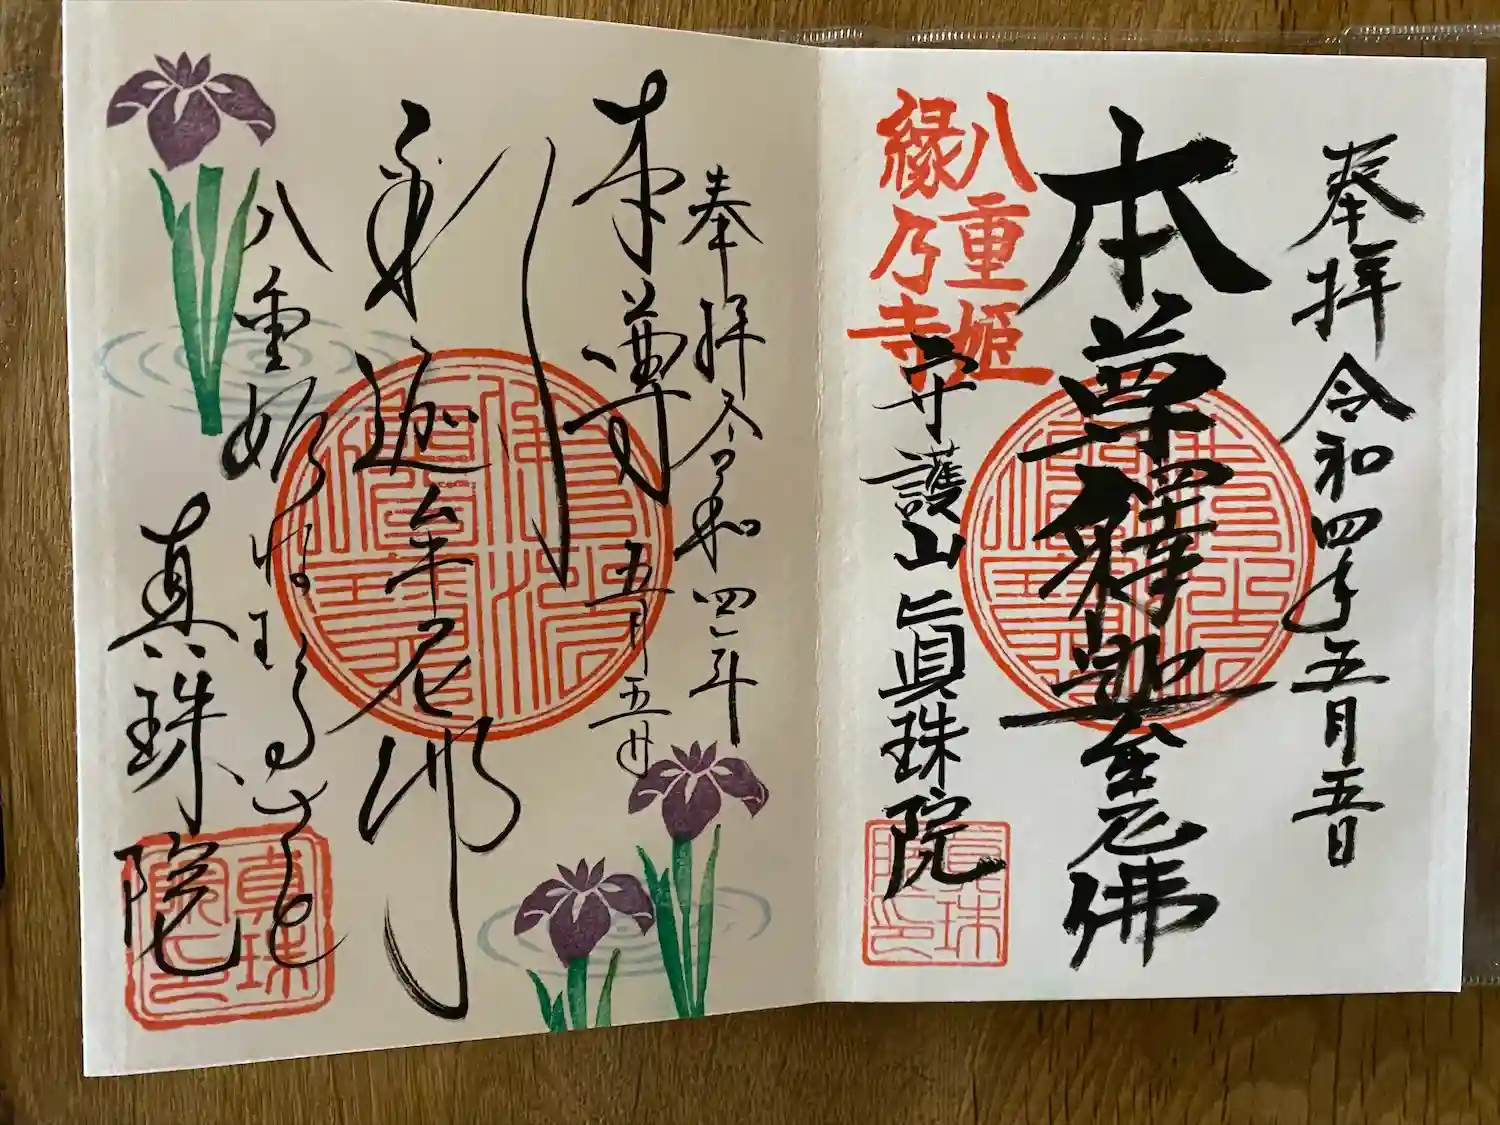 奉拝 令和四年五月五日
本尊釋迦牟尼佛
八重姫
縁乃寺
守護山眞珠院
奉拝 令和四年
五月五日
本尊
釈迦牟尼佛
八重姫
真珠院
真珠
院印